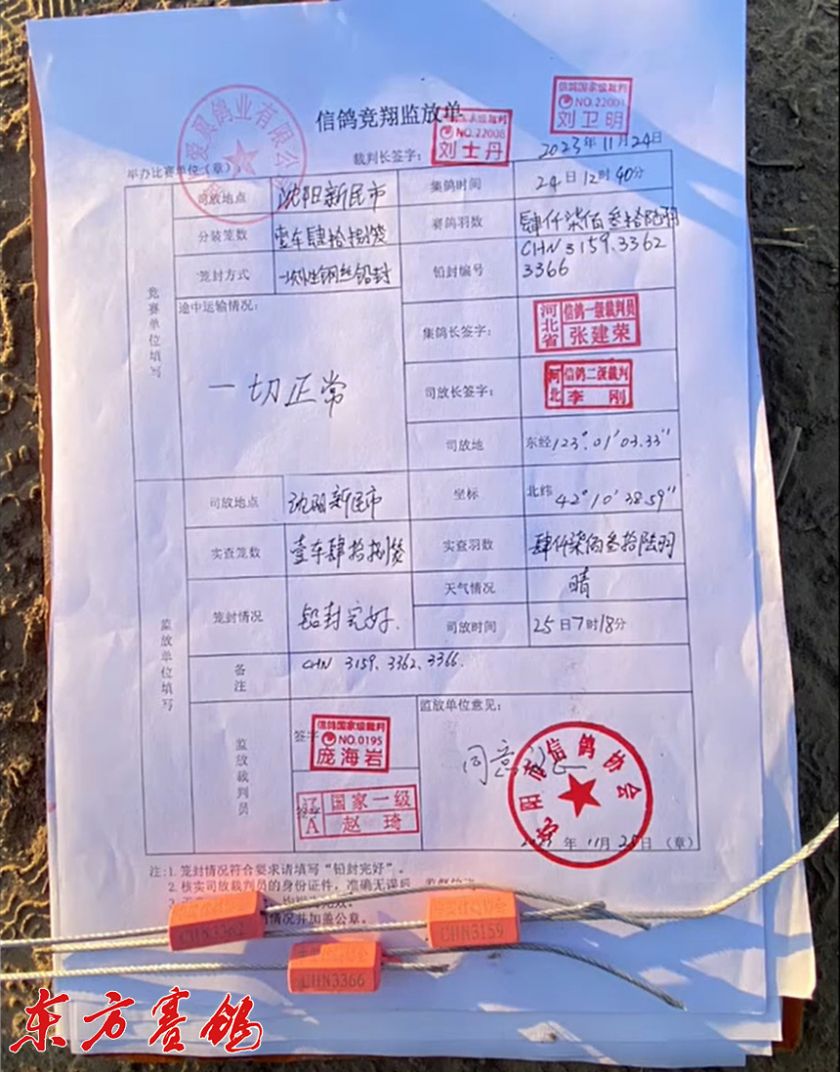 信鸽竞翔监放单
信鸽国家级裁判
NO.22001
刘卫明
NO.22008
刘士丹
爱翼鸽业有限公
举办比赛单位(章):
裁判长签字:
2023年11月24日
竞赛单位填写
司放地点 沈阳新民市 集鸽时间 24日12时40分
分装笼数 壹车肆拾捌笼 赛鸽羽数 肆仟柒佰叁拾陆羽
笼封方式 一次性钢丝铅封 铅封编号 CHN 3159.3362
3366
途中运输情况:
一切正常
集鸽长签字: 河北省 信鸽一级裁判员 张建荣
司放长签字: 河北 信鸽二级裁判 李刚
司放地 东经123°.01'03.33''
监放单位填写
司放地点 沈阳新民市 坐标 北纬42°10'38.59''
实查笼数 壹车肆拾捌笼 实查羽数 肆仟柒佰叁拾陆羽
笼封情况 铅封完好. 天气情况 晴
司放时间 25日7时18分
备注 CHN 3159、3362、3366.
监放裁判员
签字
信鸽国家级裁判
NO.0195
庞海岩
签字
辽A 国家一级 赵琦
监放单位意见:
同意
阳市信鸽协会
年11月25日(章)
注:1.笼封情况符合要求请填写“铅封完好”。
2.核实司放裁判员的身份证件,准确无误后,
情况并加盖公章。
CHN3362
CHN3159
CHN3366
东方赛鸽